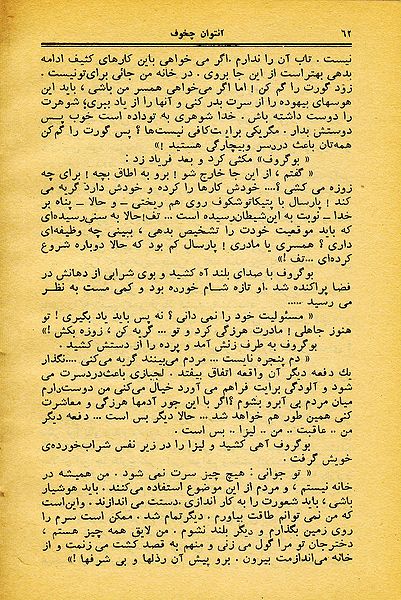 ۶۲ آنتوان چخوف
نیست . تاب آن را ندارم . اگر می خواهی باین کارهای کثیف ادامه
بدهی بهتر است از این جا بروی . در خانه من جائی برای تو نیست .
زود گورت را گم کن ! اما اگر می‌خواهی همسر من باشی ، باید این
هوسهای بیهوده را از سرت بدر کنی و آنها را از یاد ببری؛ شوهرت
را دوست داشته باش . خدا شوهری به تو داده است خوب پس
دوستش بدار . مگر یکی برایت کافی نیست‌ها ؟ پس گورت را گم کن
همه‌تان باعث دردسر و بیچارگی هستید !»
« بوگروف» مکثی کرد و بعد فریاد زد :
« گفتم ، از این جا خارج شو ! برو به اطاق بچه ! برای چه
زوزه می کشی ؟.... خودش کارها را کرده و خودش دارد گریه می
کند ! پارسال با پتیکاتوشکوف روی هم ریختی .. و حالا .. پناه بر
خدا ـ نوبت به این شیطان رسیده است ... تف! حالا به سنی رسیده‌ای
که باید موقعیت خودت را تشخیص بدهی ، ببینی چه وظیفه‌ای
داری ؟ همسری یا مادری ! پارسال کم بود که حالا دوباره شروع
کرده‌ای ... تف !»
بوگروف با صدای بلند آه کشید و بوی شرابی از دهانش در
فضا پراکنده شد . او تازه شام خورده بود و کمی مست به نظر
می رسید .....
« مسئولیت خود را نمی دانی ؟ نه پس باید یاد بگیری ! تو
هنوز جاهلی ! مادرت هرزگی کرد و تو ... گریه کن ، زوزه بکش !»
بوگروف به طرف زنش آمد و پرده را از دستش کشید .
« دم پنجره نایست ... مردم می‌بینند گریه می‌کنی .... نگذار
یك دفعه دیگر آن واقعه اتفاق بیفتد . لجبازی باعث دردسرت می
شود و آلودگی برایت فراهم می آورد خیال می‌کنی من دوست دارم
میان مردم بی آبرو بشوم ؟ اگر با این جور آدمها هرزگی و معاشرت
کنی همین طور هم خواهد شد ... حالا دیگر بس است ... دفعه دیگر
من .. عاقبت .. من .. لیزا .. بس است .
بوگروف آهی کشید و لیزا را در زیر نفس شراب‌خورده‌ی
خویش گرفت .
« تو جوانی : هیچ چیز سرت نمی شود . من همیشه در
خانه نیستم ، و مردم از این موضوع استفاده می‌کنند . باید هوشیار
باشی ، باید شعورت را به کار اندازی . دستت می اندازند . و این است
که من نمی توانم طاقت بیاورم . دیگر تمام شد . ممکن است سرم را
روی زمین بگذارم و دیگر بلند نشوم . من لایق همه چیز هستم ،
دختر جان تو مرا گول می زنی و منهم به قصد کشت می زنمت و از
خانه می‌اندازمت بیرون . برو پیش آن رذلها و بی شرفها !»